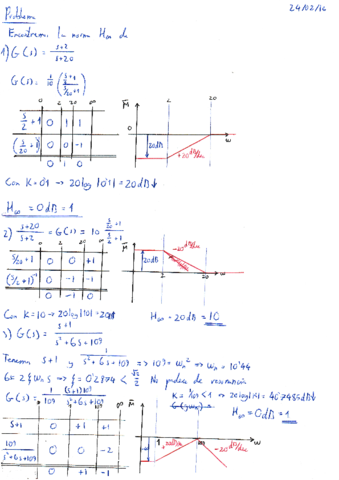 24/02/16
Problema
Encontremos la norma H∞ de
1) G(s) = s+2 / s+20
G(s) = 1/10 ( s/2 +1 / s/20 +1 )
0 2 20 ∞
s/2 +1 0 1 1
(s/20 +1) 0 0 -1
0 1 0
M
2 20
0 w
20dB +20dB/dec
Con K=0'1 → 20log|0'1| = 20dB↓
H∞ = 0dB = 1
2) s+20 / s+2 = G(s) = 10 s/20 +1 / s/2 +1
0 2 20 ∞
s/20 +1 0 0 +1
(s/2 +1)^-1 0 -1 -1
0 -1 0
M
20dB -20dB/dec
2 20 w
Con K=10 → 20log|10| = 20dB H∞ = 20dB = 10
3) G(s) = s+1 / s²+6s+109
Tenemos s+1 y 1 / s²+6s+109 → 109 = wn² → wn = 10'44
6 = 2ξwn → ξ = 0'2874 < √2/2
G(s) = 1/109 (s+1)109 / s²+6s+109 K = 1/109 < 1 → 20log|K| = 40'7485dB↓
H∞ = 0dB = 1
s+1 0 +1 +1
109 / s²+6s+109 0 0 -2
0 +1 -1
M
20dB/dec -20dB/dec
1 w